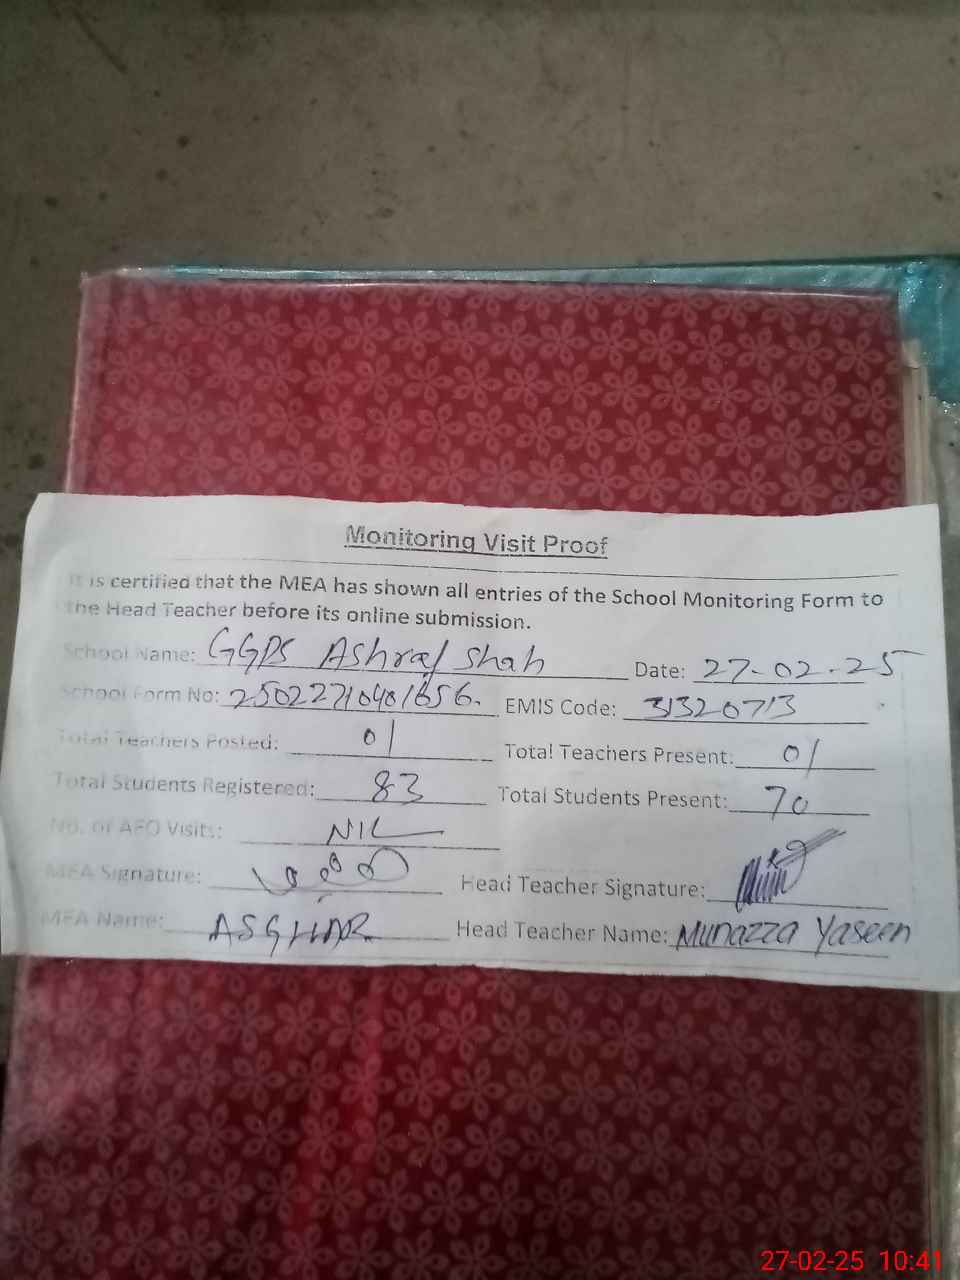 Monitoring Visit Proof
It is certified that the MEA has shown all entries of the School Monitoring Form to
the Head Teacher before its online submission.
School Name: GGPS Ashraf Shah Date: 27-02-25
School Form No: EMIS Code: 31320713
Total Teachers Posted: 01 Total Teachers Present: 01
Total Students Registered: 83 Total Students Present: 70
No. of AEO Visits: NIL
MEA Signature: Head Teacher Signature:
MEA Name: ASGHAR Head Teacher Name: Munazza Yaseen
27-02-25 10:41